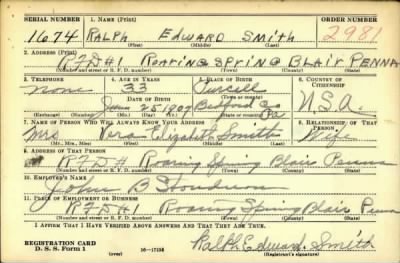 SERIAL NUMBER 1. NAME (Print) ORDER NUMBER
1674 RALPH EDWARD SMITH 2981
(First) (Middle) (Last)
2. ADDRESS (Print)
RFD#1 ROARING SPRING BLAIR PENNA
(Number and street or R. F. D. number) (Town) (County) (State)
3. TELEPHONE 4. AGE IN YEARS 5. PLACE OF BIRTH 6. COUNTRY OF CITIZENSHIP
None 33 Purcell
DATE OF BIRTH (Town or county)
June 25 1907 Bedford Co Pa U.S.A.
(Exchange) (Mo.) (Day) (Yr.) (State or country)
7. NAME OF PERSON WHO WILL ALWAYS KNOW YOUR ADDRESS 8. RELATIONSHIP OF THAT PERSON
Mrs Vera Elizabeth Smith Wife
(Mr., Mrs., Miss) (First) (Middle) (Last)
9. ADDRESS OF THAT PERSON
RFD#1 Roaring Spring Blair Penna
(Number and street or R. F. D. number) (Town) (County) (State)
10. EMPLOYER'S NAME
John B
11. PLACE OF EMPLOYMENT OR BUSINESS
RFD#1 Roaring Spring Blair Penna
(Number and street or R. F. D. number) (Town) (County) (State)
I AFFIRM THAT I HAVE VERIFIED ABOVE ANSWERS AND THAT THEY ARE TRUE.
REGISTRATION CARD
D. S. S. Form 1 (over) 16-17105 Ralph Edward Smith
(Registrant's signature)